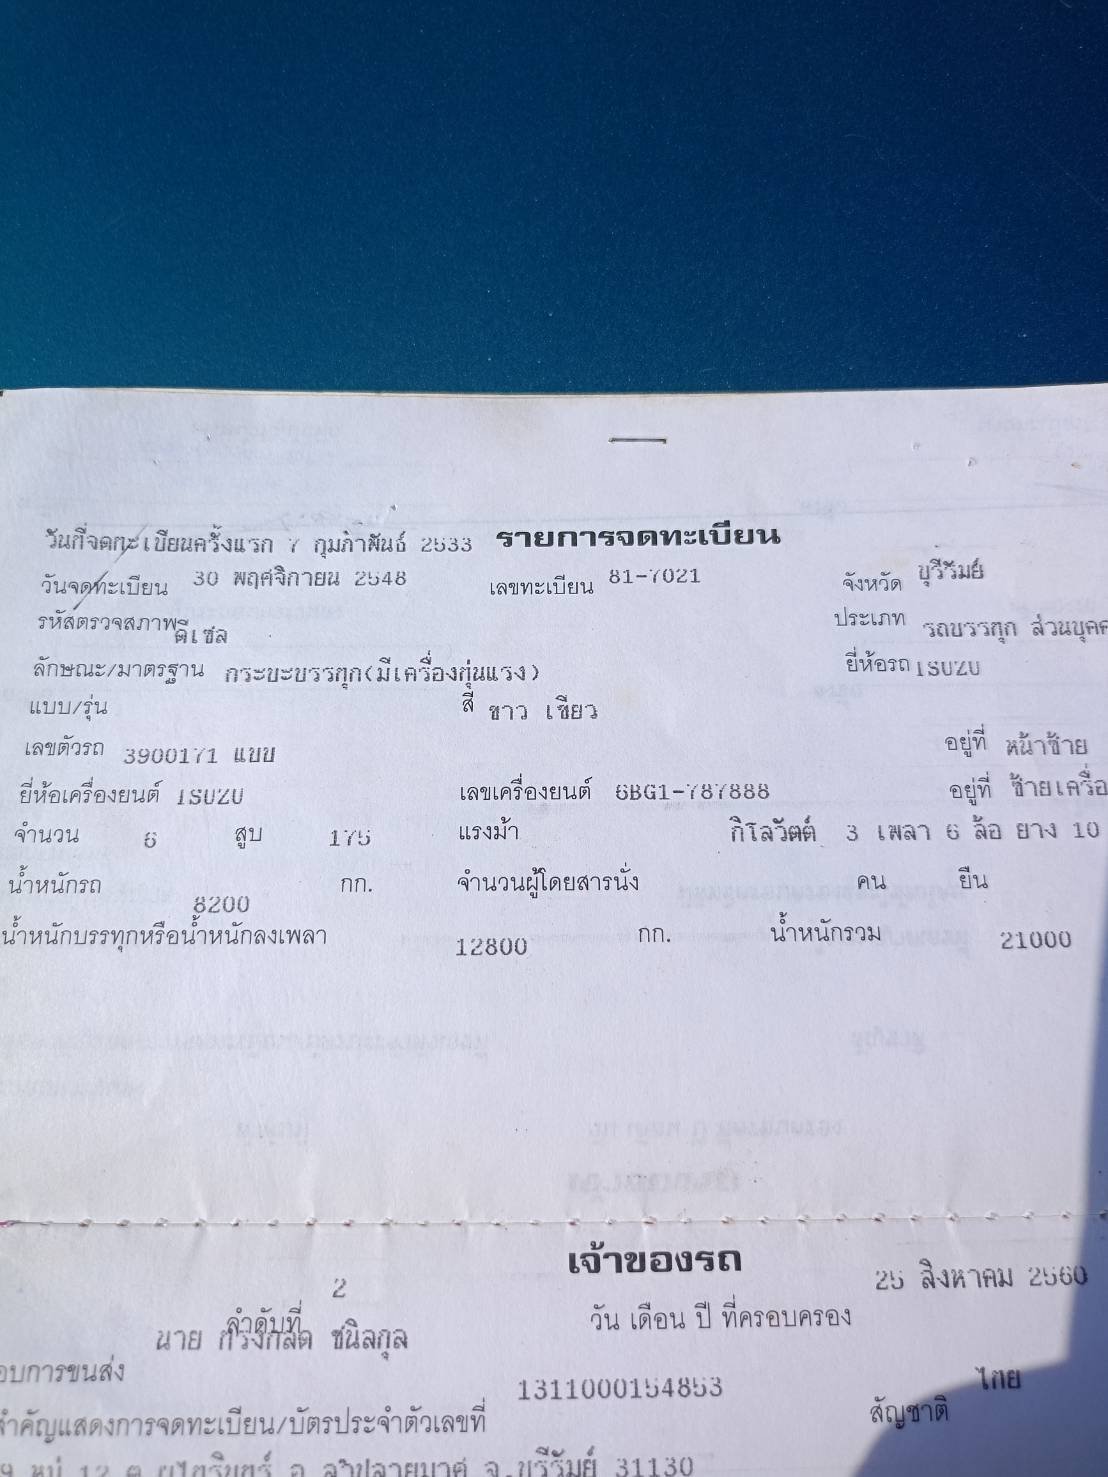 วันที่จดทะเบียนครั้งแรก 7 กุมภาพันธ์ 2533 รายการจดทะเบียน
วันจดทะเบียน 30 พฤศจิกายน 2548 เลขทะเบียน 81-7021 จังหวัด บุรีรัมย์
รหัสตรวจสภาพ ดีเซล ประเภท รถบรรทุก ส่วนบุคค
ลักษณะ/มาตรฐาน กระบะบรรทุก(มีเครื่องทุ่นแรง) ยี่ห้อรถ ISUZU
แบบ/รุ่น สี ขาว เขียว
เลขตัวรถ 3900171 แบบ อยู่ที่ หน้าซ้าย
ยี่ห้อเครื่องยนต์ ISUZU เลขเครื่องยนต์ 6BG1-787888 อยู่ที่ ซ้ายเครื่อ
จำนวน 6 สูบ 175 แรงม้า กิโลวัตต์ 3 เพลา 6 ล้อ ยาง 10
น้ำหนักรถ 8200 กก. จำนวนผู้โดยสารนั่ง คน ยืน
น้ำหนักบรรทุกหรือน้ำหนักลงเพลา 12800 กก. น้ำหนักรวม 21000
เจ้าของรถ
ลำดับที่ 2 วัน เดือน ปี ที่ครอบครอง 25 สิงหาคม 2560
นาย ชนิลกุล
อบการขนส่ง
สำคัญแสดงการจดทะเบียน/บัตรประจำตัวเลขที่ 1311000154853 สัญชาติ ไทย
9 หมู่ 12 ต อ ลำปลายมาศ จ.บุรีรัมย์ 31130